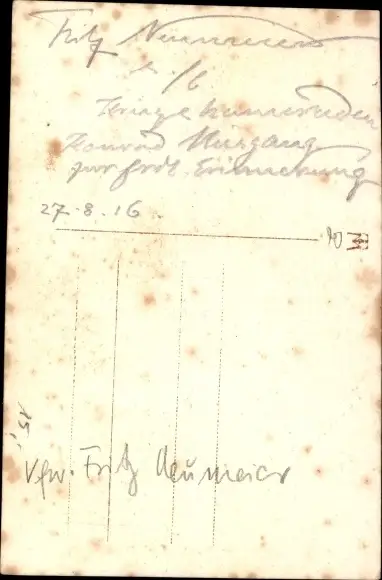 Fritz Neumeier
s./l
Kriegskameraden
Konrad Mürgang
zur frdl. Erinnerung
27.8.16
15,-
Vfw. Fritz Neumeier